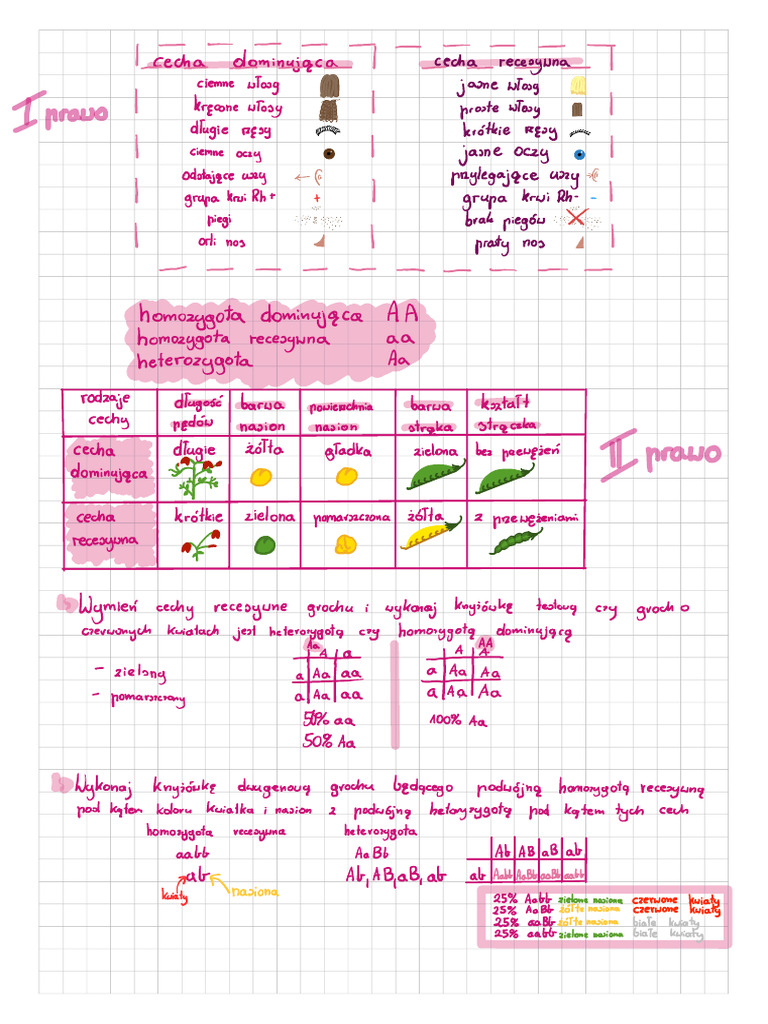 I prawo
cecha dominująca
ciemne włosy
kręcone włosy
długie rzęsy
ciemne oczy
odstające uszy
grupa krwi Rh+ +
piegi
orli nos
cecha recesywna
jasne włosy
proste włosy
krótkie rzęsy
jasne oczy
przylegające uszy
grupa krwi Rh- -
brak piegów
prosty nos
homozygota dominująca AA
homozygota recesywna aa
heterozygota Aa
II prawo
rodzaje cechy
długość pędów
barwa nasion
powierzchnia nasion
barwa strąka
kształt strączka
cecha dominująca
długie
żółta
gładka
zielona
bez pzewężeń
cecha recesywna
krótkie
zielona
pomarszczona
żółta
z przewężeniami
Wymień cechy recesywne grochu i wykonaj krzyżówkę testową czy groch o
czerwonych kwiatach jest heterozygotą czy homozygotą dominującą
- zielony
- pomarszczony
Aa
A a
a Aa aa
a Aa aa
50% aa
50% Aa
AA
A A
a Aa Aa
a Aa Aa
100% Aa
Wykonaj krzyżówkę dwugenową grochu będącego podwójną homozygotą recesywną
pod kątem koloru kwiatka i nasion z podwójną heterozygotą pod kątem tych cech
homozygota recesywna
aabb
ab
kwiaty
nasiona
heterozygota
AaBb
Ab, AB, aB, ab
Ab AB aB ab
ab Aabb AaBb aaBb aabb
25% Aabb zielone nasiona czerwone kwiaty
25% AaBb żółte nasiona czerwone kwiaty
25% aaBb żółte nasiona białe kwiaty
25% aabb zielone nasiona białe kwiaty